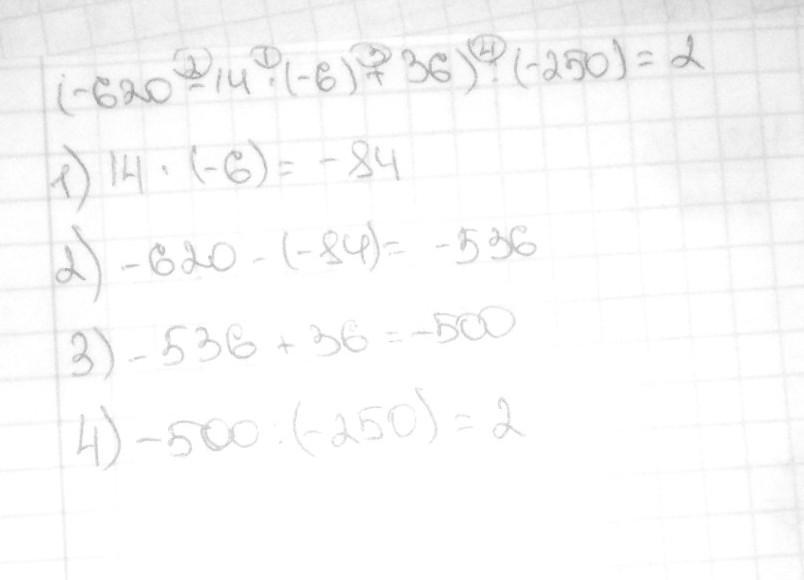 (-620 - 14 · (-6) + 36) : (-250) = 2
1) 14 · (-6) = -84
2) -620 - (-84) = -536
3) -536 + 36 = -500
4) -500 : (-250) = 2